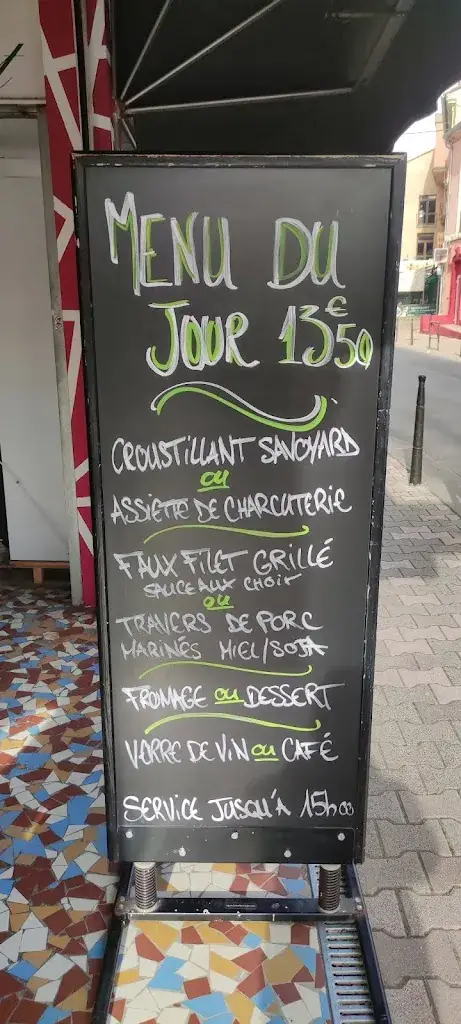 MENU DU
JOUR 13€50
CROUSTILLANT SAVOYARD
ou
ASSIETTE DE CHARCUTERIE
FAUX FILET GRILLÉ
SAUCE AUX CHOIX
ou
TRAVERS DE PORC
MARINÉS MIEL/SOJA
FROMAGE ou DESSERT
VERRE DE VIN ou CAFÉ
SERVICE JUSQU'À 15h00